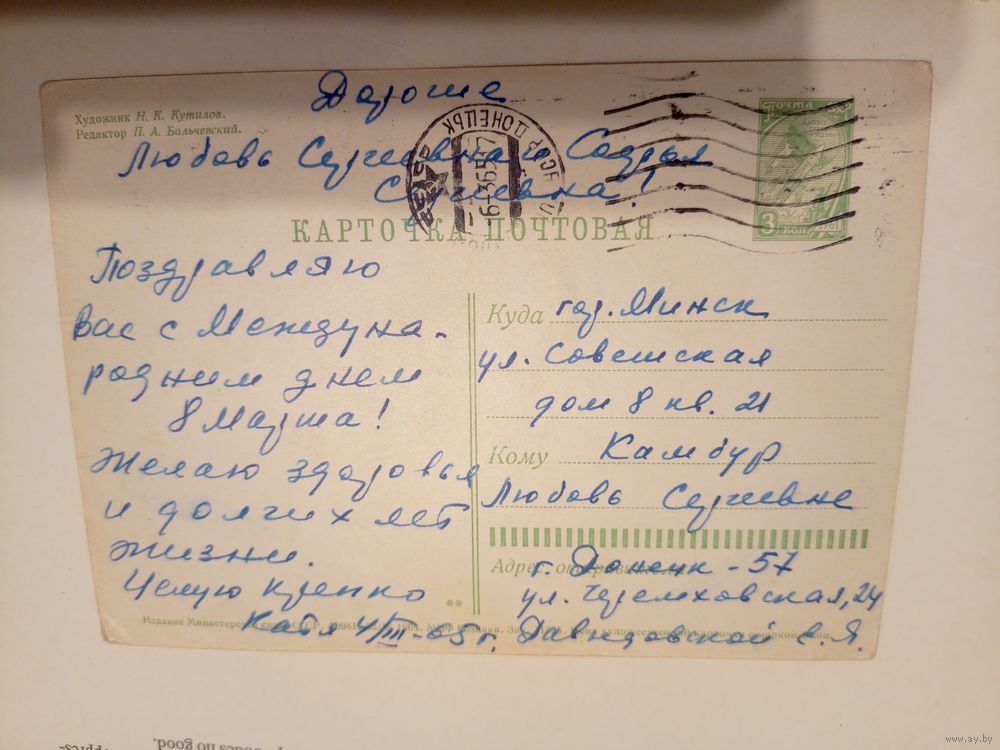 Художник Н. К. Кутилов.
Редактор П. А. Бальчевский.
Дорогие
Любовь Сергеевна и Софья
Сергеевна!
ПОЧТА
3 КОП
1961
ДОНЕЦЬК
КАРТОЧКА ПОЧТОВАЯ
Поздравляю
Вас с Междуна-
родним днем
8 Марта!
Желаю здоровья
и долгих лет
жизни.
Целую крепко
Катя 4/III-65 г.
**
Куда гор. Минск
ул. Советская
дом 8 кв. 21
Кому Камбур
Любовь Сергеевне
Адрес отправителя
г. Донецк - 57
ул. Черемховская, 24
Давидовской Е. Я.
Издание Министерства связи СССР.
www.ay.by